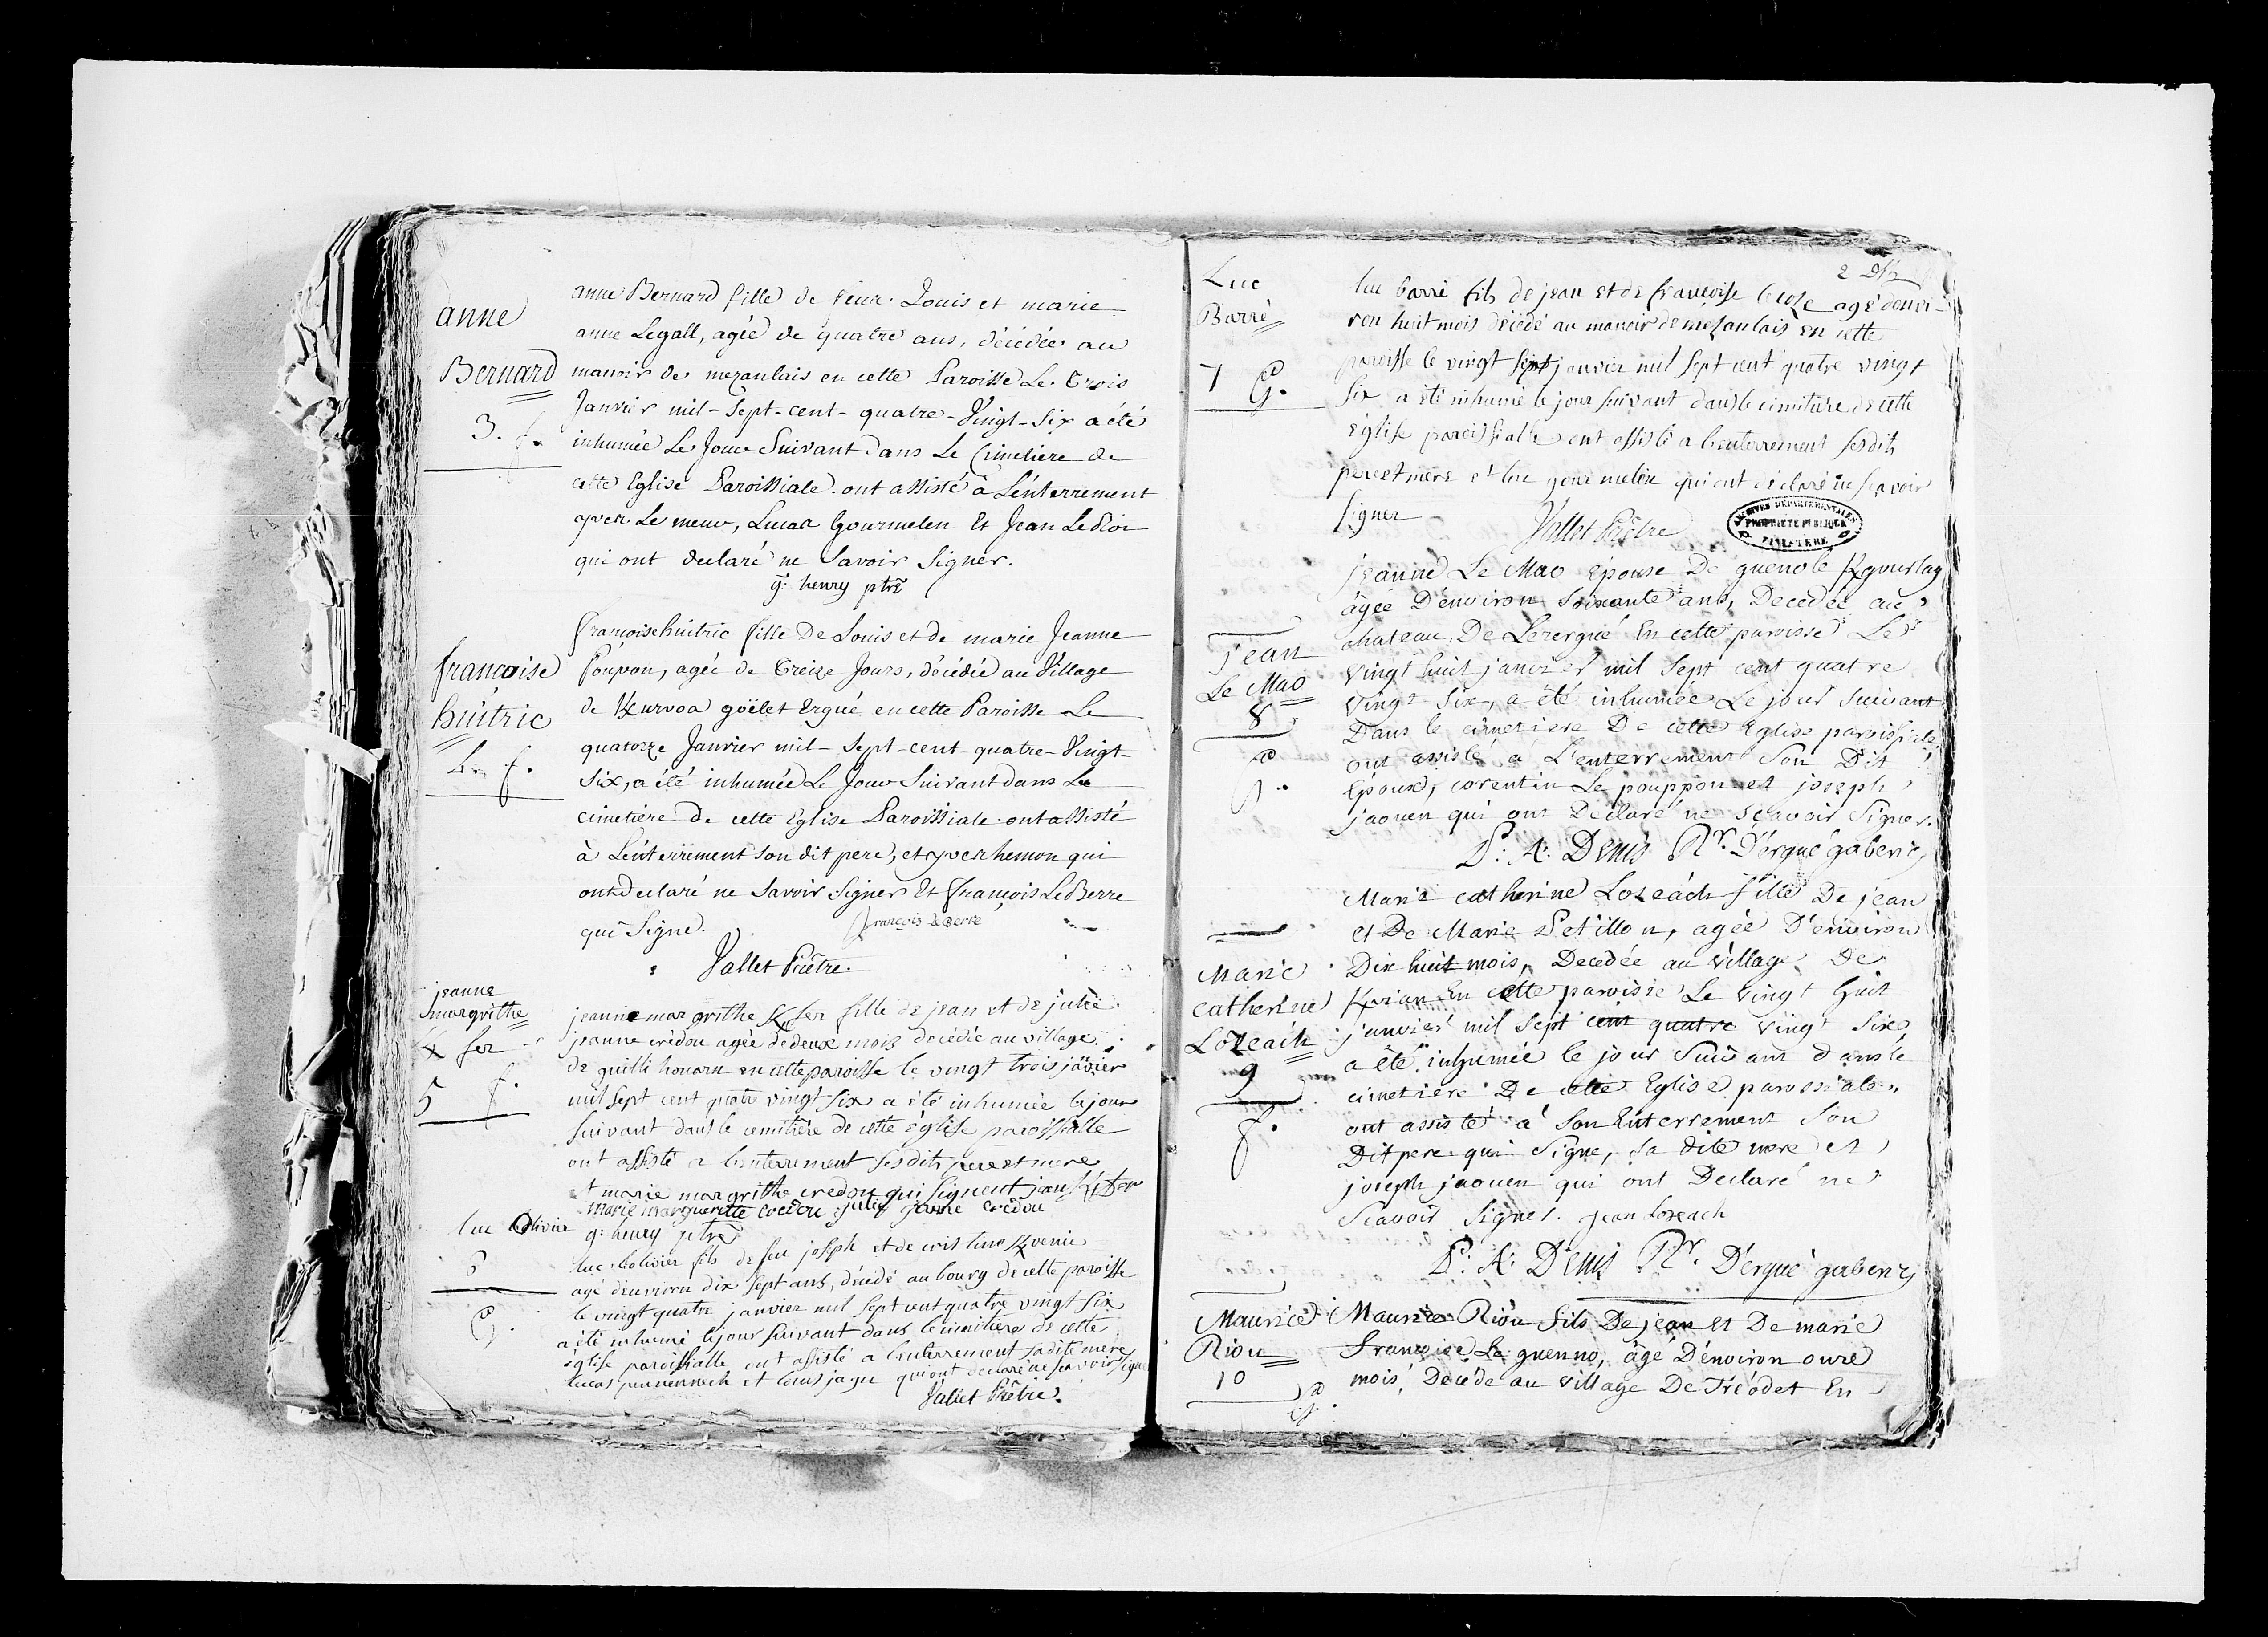 anne
Bernard
3. f.
anne Bernard fille de feux Louis et marie
anne Legall, agée de quatre ans, décédée au
manoir de mezanlais en cette Paroisse Le trois
Janvier mil-Sept-cent-quatre-Vingt-Six a été
inhumée Le Jour Suivant dans Le Cimetiere de
cette Eglise Paroissiale. ont assisté à L'enterrement
yves Le meur, Lucas Gourmelen Et Jean Le
qui ont declaré ne Savoir Signer.
g: henry ptre
françoise
huitric
4. f.
françoise huitric fille De Louis et de marie Jeanne
Poupon, agée de Treize Jours, décédée au Village
de Kurvoa goëlet Ergué en cette Paroisse Le
quatorze Janvier mil-Sept-cent quatre-Vingt-
Six, a été inhumée Le Jour Suivant dans Le
cimetiere de cette Eglise Paroissiale ont assisté
à L'enterrement Son dit pere, et yves hemon qui
ont declaré ne Savoir Signer Et François Le Berre
qui Signe. François Le Berre
Vallet Prêtre.
jeanne
margrithe
K fer
5 f.
jeanne margrithe K fer fille de jean et de julie
jeanne crédou agée de deux mois décédée au village
de quilli houarn en cette paroisse le vingt trois javier
mil sept cent quatre vingt six a été inhumée le jour
suivant dans le cemitière de cette église paroissialle
ont assisté a l'enterrement ses dits pere et mere
et marie margrithe credou qui signent jean K/fer
marie margueritte crédou julie jeanne crédou
g: henry ptre
luc Lolivier
6
G.
luc Lolivier fils de feu joseph et de cristine Kvenie
agé d'environ dix sept ans, décédé au bourg de cette paroisse
le vingt quatre janvier mil sept cent quatre vingt six
a été inhumé le jour suivant dans le cimitière de cette
église paroissialle ont assisté a l'enterrement sa dite mere
lucas et louis jague qui ont declaré ne sçavoir signer
Vallet Prêtre.
2
Luc
Barré
7 G.
luc barré fils de jean et de françoise le coze agé d'envi-
ron huit mois décédé au manoir de mezanlais en cette
paroisse le vingt sept janvier mil sept cent quatre vingt
six a été inhumé le jour suivant dans le cimitière de cette
église paroissialle ont assisté a l'enterrement ses dits
pere et mere et luc gourmelen qui ont déclaré ne sçavoir
signer
Vallet Prêtre
ARCHIVES DÉPARTEMENTALES
PROPRIÉTÉ PUBLIQUE
FINISTÈRE
jean
Le Mao
8
f.
jeanne Le Mao épouse De guenolé Kgourlay
âgée D'environ Soixante ans, Decedée au
chateau De Lezergué En cette paroisse Le
vingt huit janvier mil Sept cent quatre
vingt Six, a été inhumée Le jour Suivant
Dans le cimetiere De cette Eglise paroissiale
ont assisté à L'enterrement Son Dit
Epoux, corentin Le pouppon et joseph
jaouen qui ont Déclaré ne Sçavoir Signer.
P: A: Denis Rr. D'ergué gaberic
Marie
catherine
Lozeách
9
f.
Marie catherine Lozeách fille De jean
et De Marie Petillon, agée D'environ
Dix huit mois, Decedée au village De
Krian En cette paroisse Le vingt huit
janvier mil Sept cent quatre vingt Six,
a été inhumée le jour Suivant dans le
cimetiere De cette Eglise paroissiale
ont assisté à Son Enterrement Son
Dit pere qui Signe, Sa dite mere et
joseph jaouen qui ont Declaré ne
Scavoir Signer. jean Lozeach
P: A: Denis Rr. D'ergué gaberic
Maurice
Riou
10
G.
Maurice Riou fils De jean et De marie
Françoise Le guenno, âgé D'environ onze
mois, Decédé au village De Tréodet En